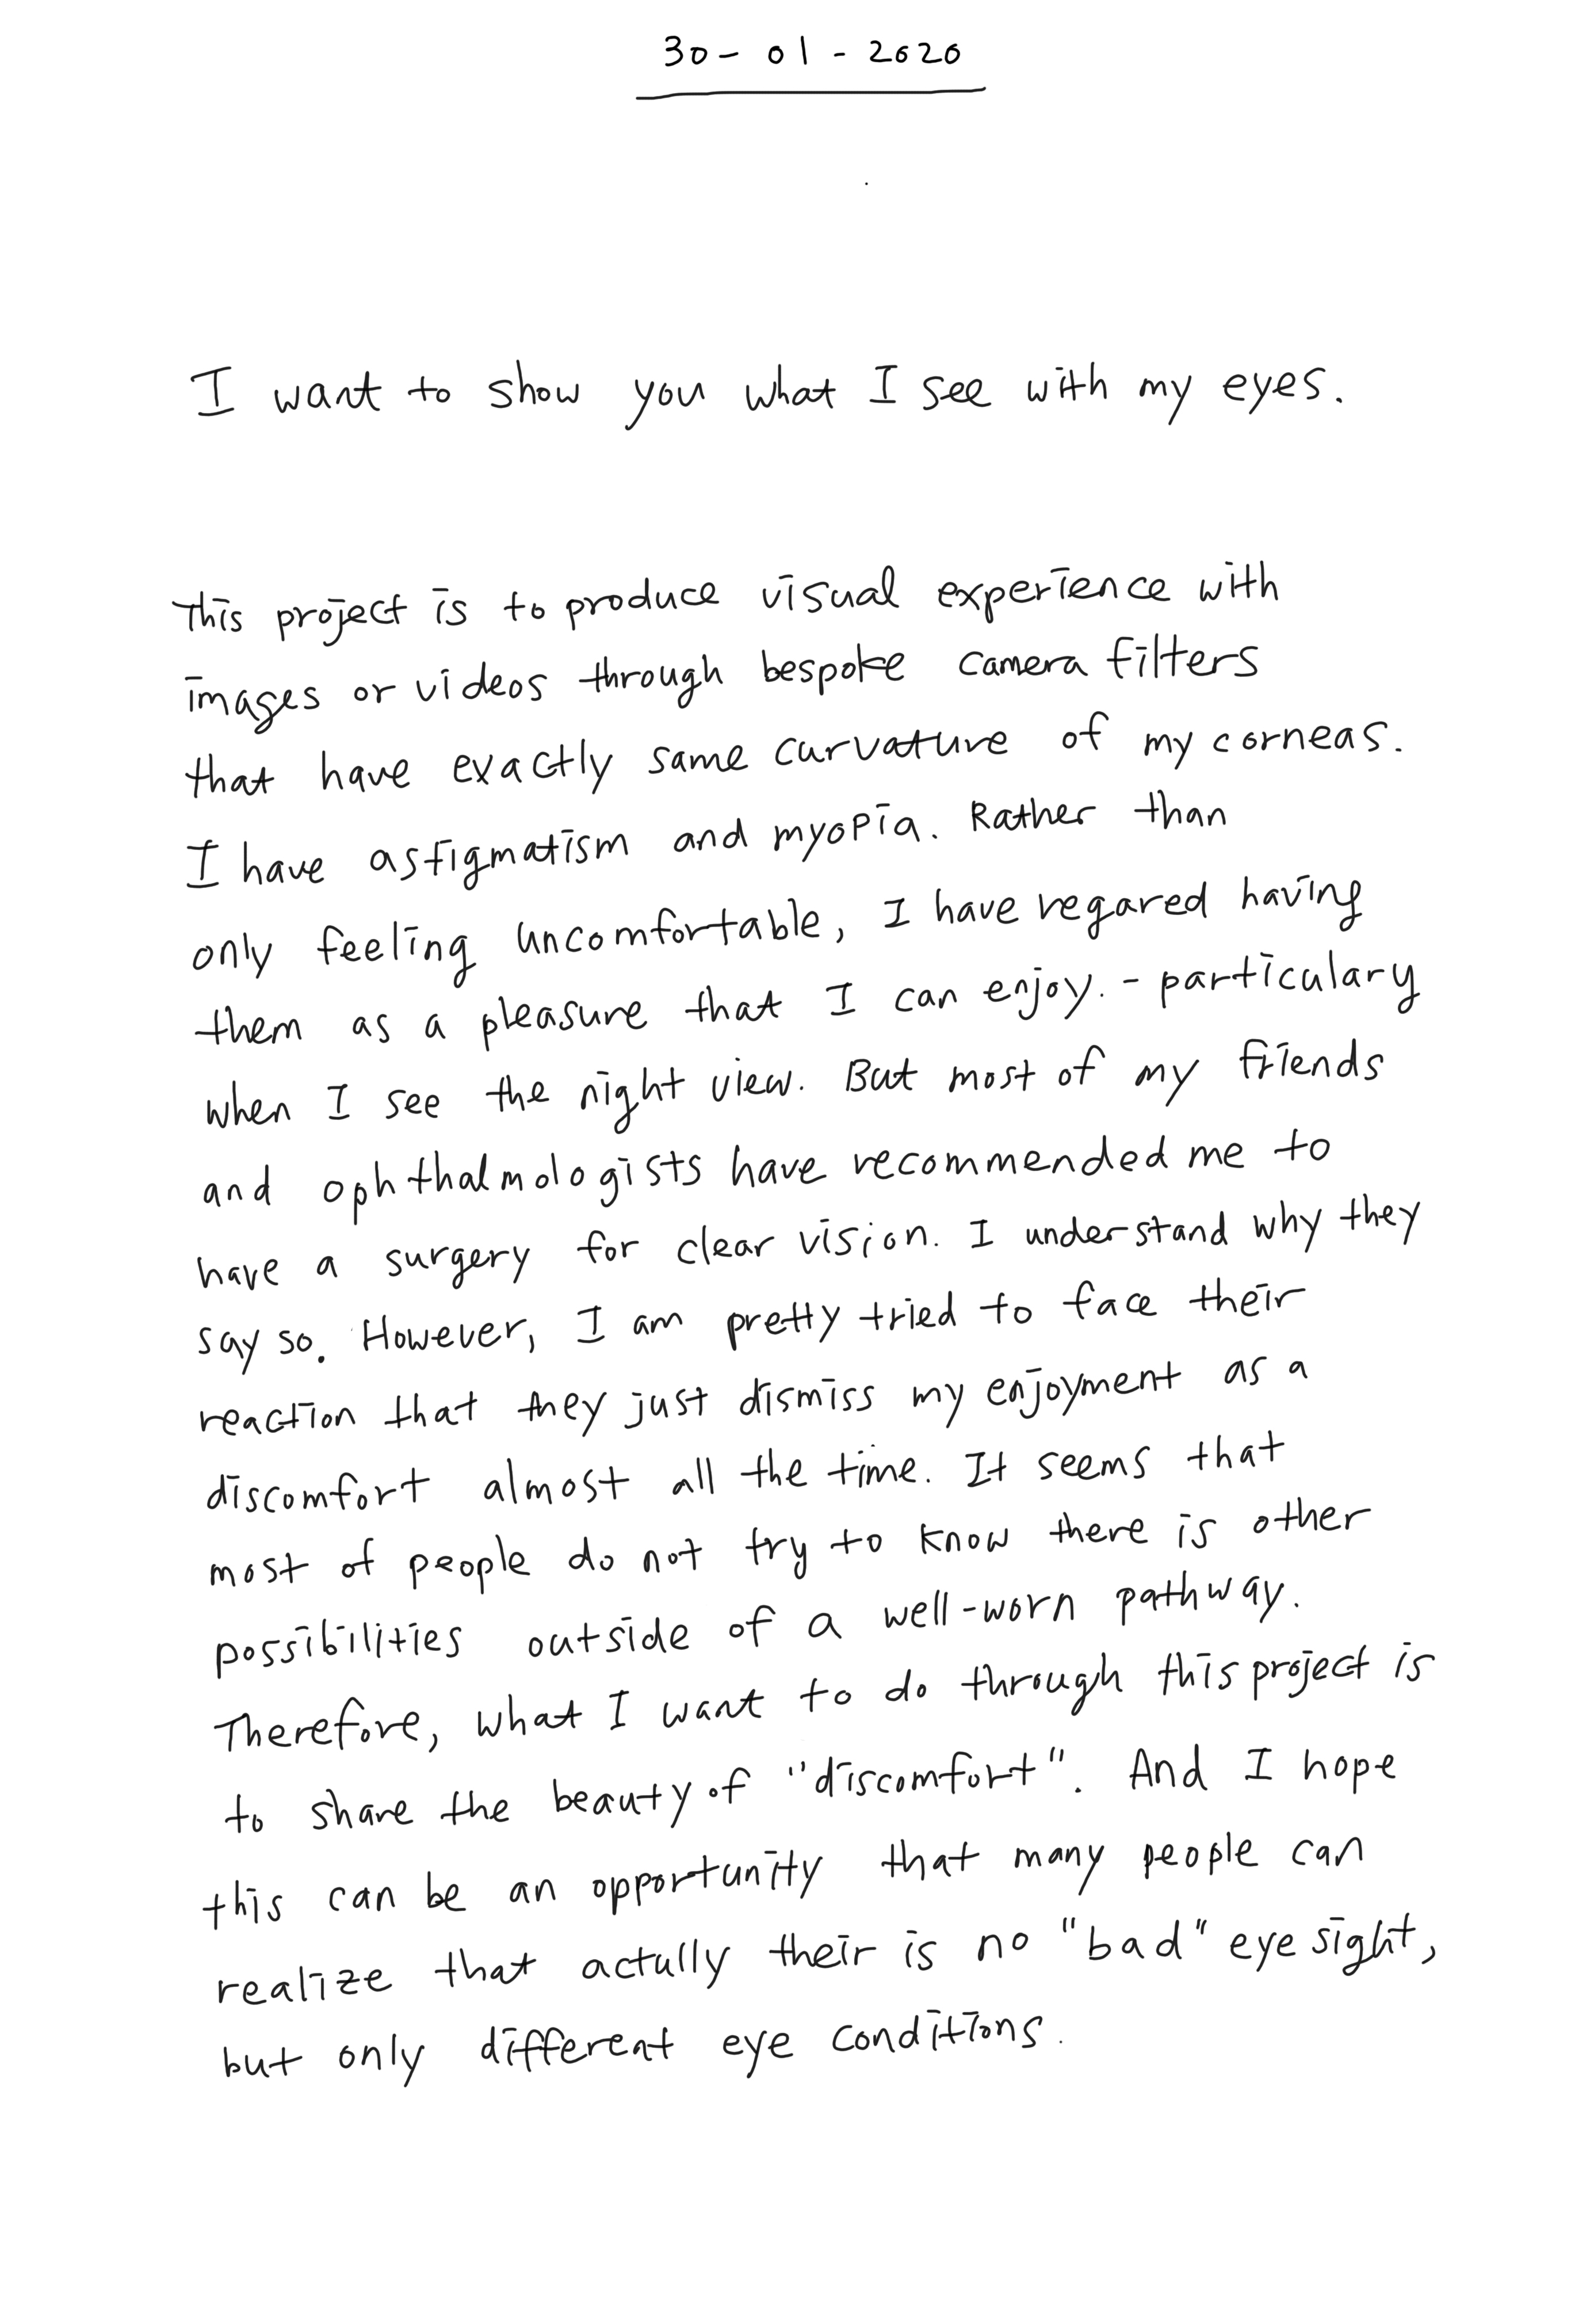 30 - 01 - 2020
I want to show you what I see with my eyes.
This project is to produce visual experience with
images or videos through bespoke camera filters
that have exactly same curvature of my corneas.
I have astigmatism and myopia. Rather than
only feeling uncomfortable, I have regared having
them as a pleasure that I can enjoy. - particulary
when I see the night view. But most of my friends
and ophthalmologists have recommended me to
have a surgery for clear vision. I understand why they
say so. However, I am pretty tried to face their
reaction that they just dismiss my enjoyment as a
discomfort almost all the time. It seems that
most of people do not try to know there is other
possibilities outside of a well-worn pathway.
Therefore, what I want to do through this project is
to share the beauty of "discomfort". And I hope
this can be an opportunity that many people can
realize that actully their is no "bad" eye sight,
but only different eye conditions.